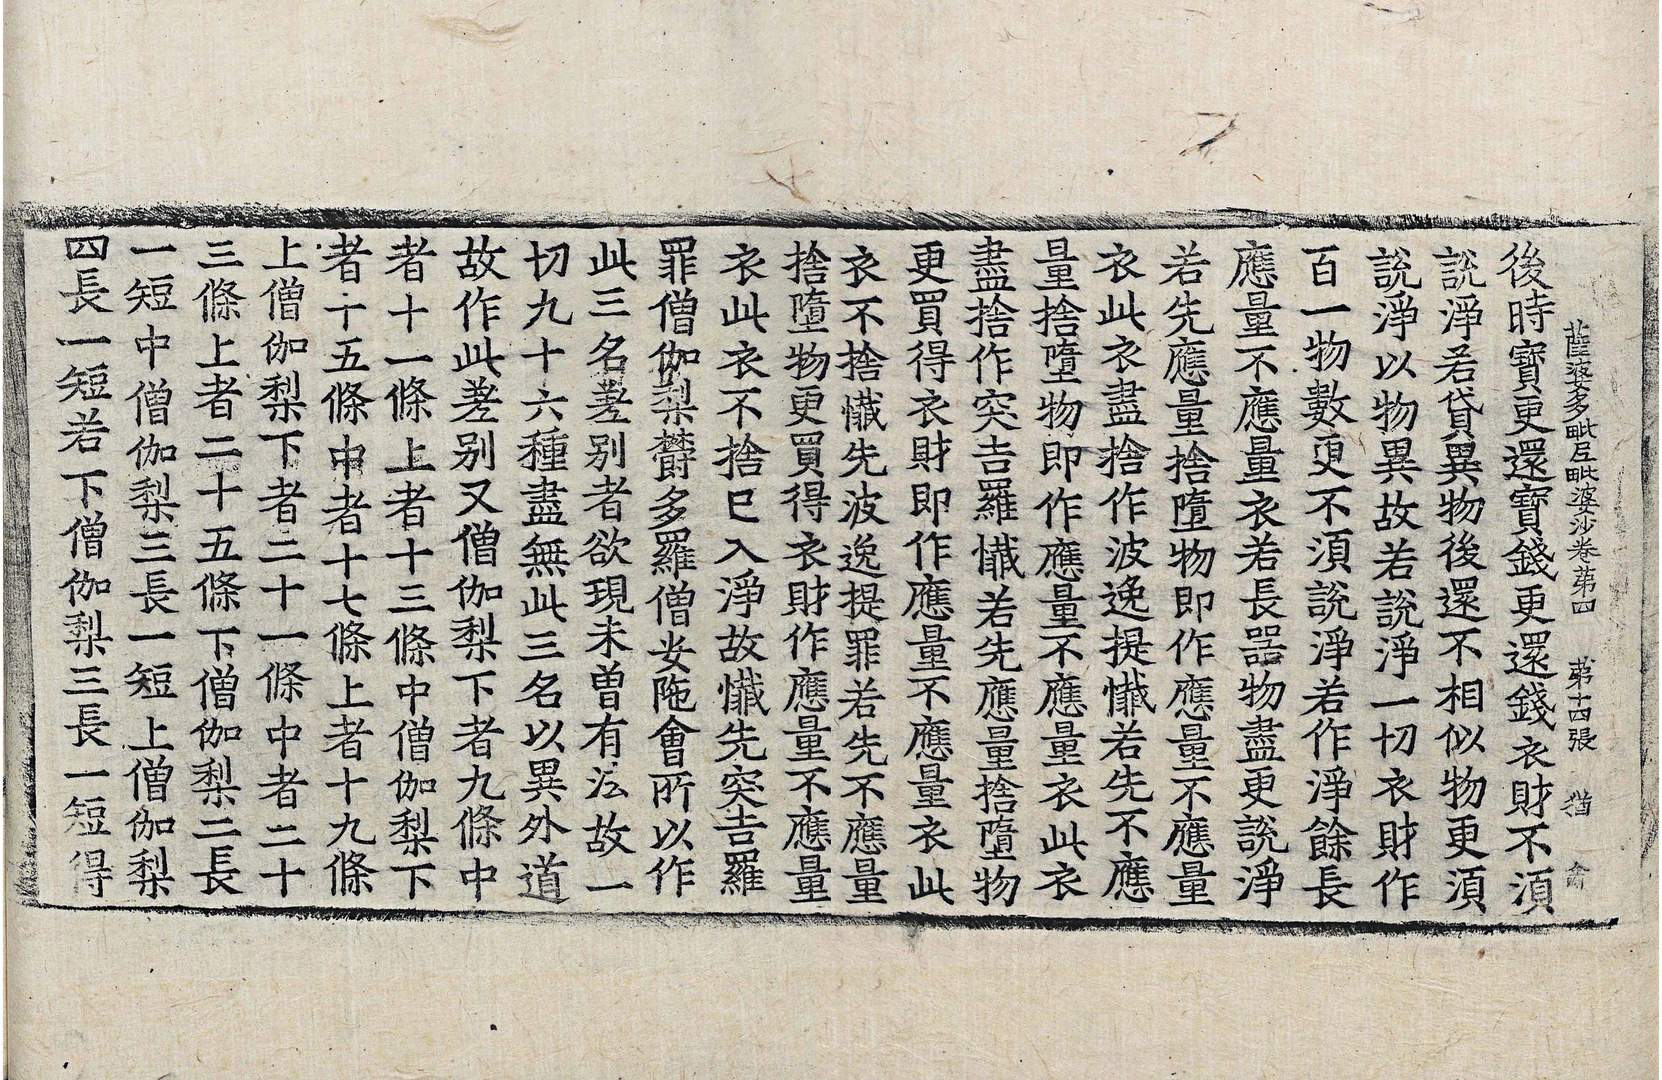 薩婆多毗尼毗婆沙卷第四 第十四張 猶
後時寶更還寶錢更還錢衣財不湏
說淨若貸異物後還不相似物更湏
說淨以物異故若說淨一切衣財作
百一物數更不湏說淨若作淨餘長
應量不應量衣若長器物盡更說淨
若先應量捨墮物即作應量不應量
衣此衣盡捨作波逸提懺若先不應
量捨墮物即作應量不應量衣此衣
盡捨作突吉羅懺若先應量捨墮物
更買得衣財即作應量不應量衣此
衣不捨懺先波逸提罪若先不應量
捨墮物更買得衣財作應量不應量
衣此衣不捨已入淨故懺先突吉羅
罪僧伽梨欝多羅僧安陁會所以作
此三名差別者欲現未曾有法故一
切九十六種盡無此三名以異外道
故作此差別又僧伽梨下者九條中
者十一條上者十三條中僧伽梨下
者十五條中者十七條上者十九條
上僧伽梨下者二十一條中者二十
三條上者二十五條下僧伽梨二長
一短中僧伽梨三長一短上僧伽梨
四長一短若下僧伽梨三長一短得